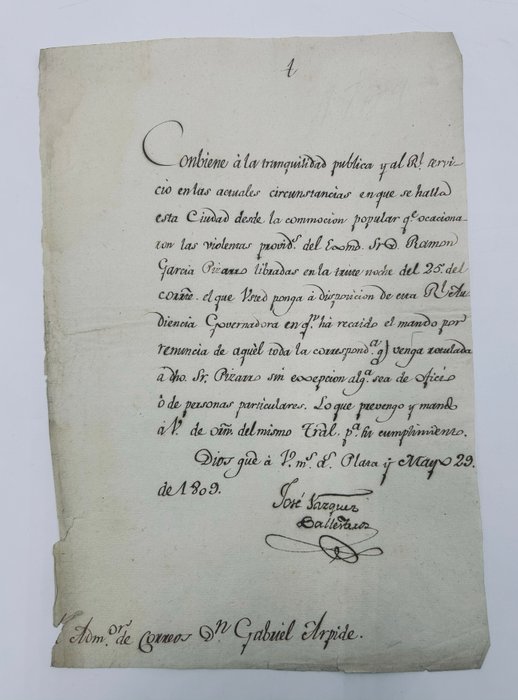 4
Conbiene à la tranquilidad publica y al Rl. servi
cio en las actuales circunstancias en que se halla
esta Ciudad desde la commocion popular qe. ocaciona
ron las violentas provids. del Exmõ. Sr. D. Ramon
Garcia Pizarro libradas en la triste noche del 25. del
corrte. el que Usted ponga à disposicion de esta Rl. Au
diencia Governadora en qn. há recaido el mando por
renuncia de aquèl toda la correspond.a q.e venga rotulada
à dho. Sr. Pizarro sin excepcion alga. sea de oficio
ò de personas particulares. Lo que prevengo y mando
à V. de orn. del mismo Tral. pa. su cumplimiento.
Dios gue. à V. ms. as. Plata y Mayo 29.
de 1809.
José Vazquez
Ballesteros
Admor. de Correos Dn. Gabriel Arpide.